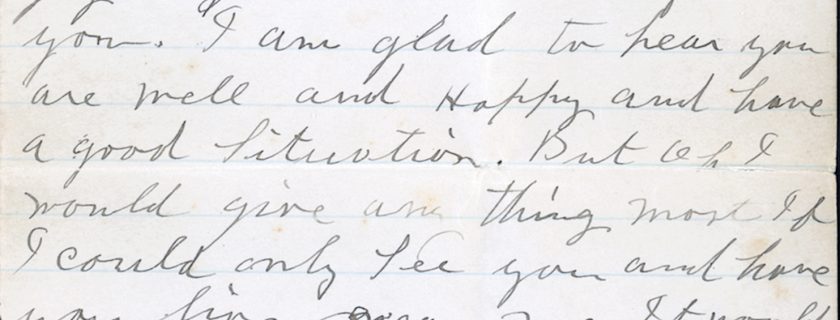 you. I am glad to hear you
are well and Happy and have
a good Situation. But Oh I
would give any thing most If
I could only See you and have
you It would